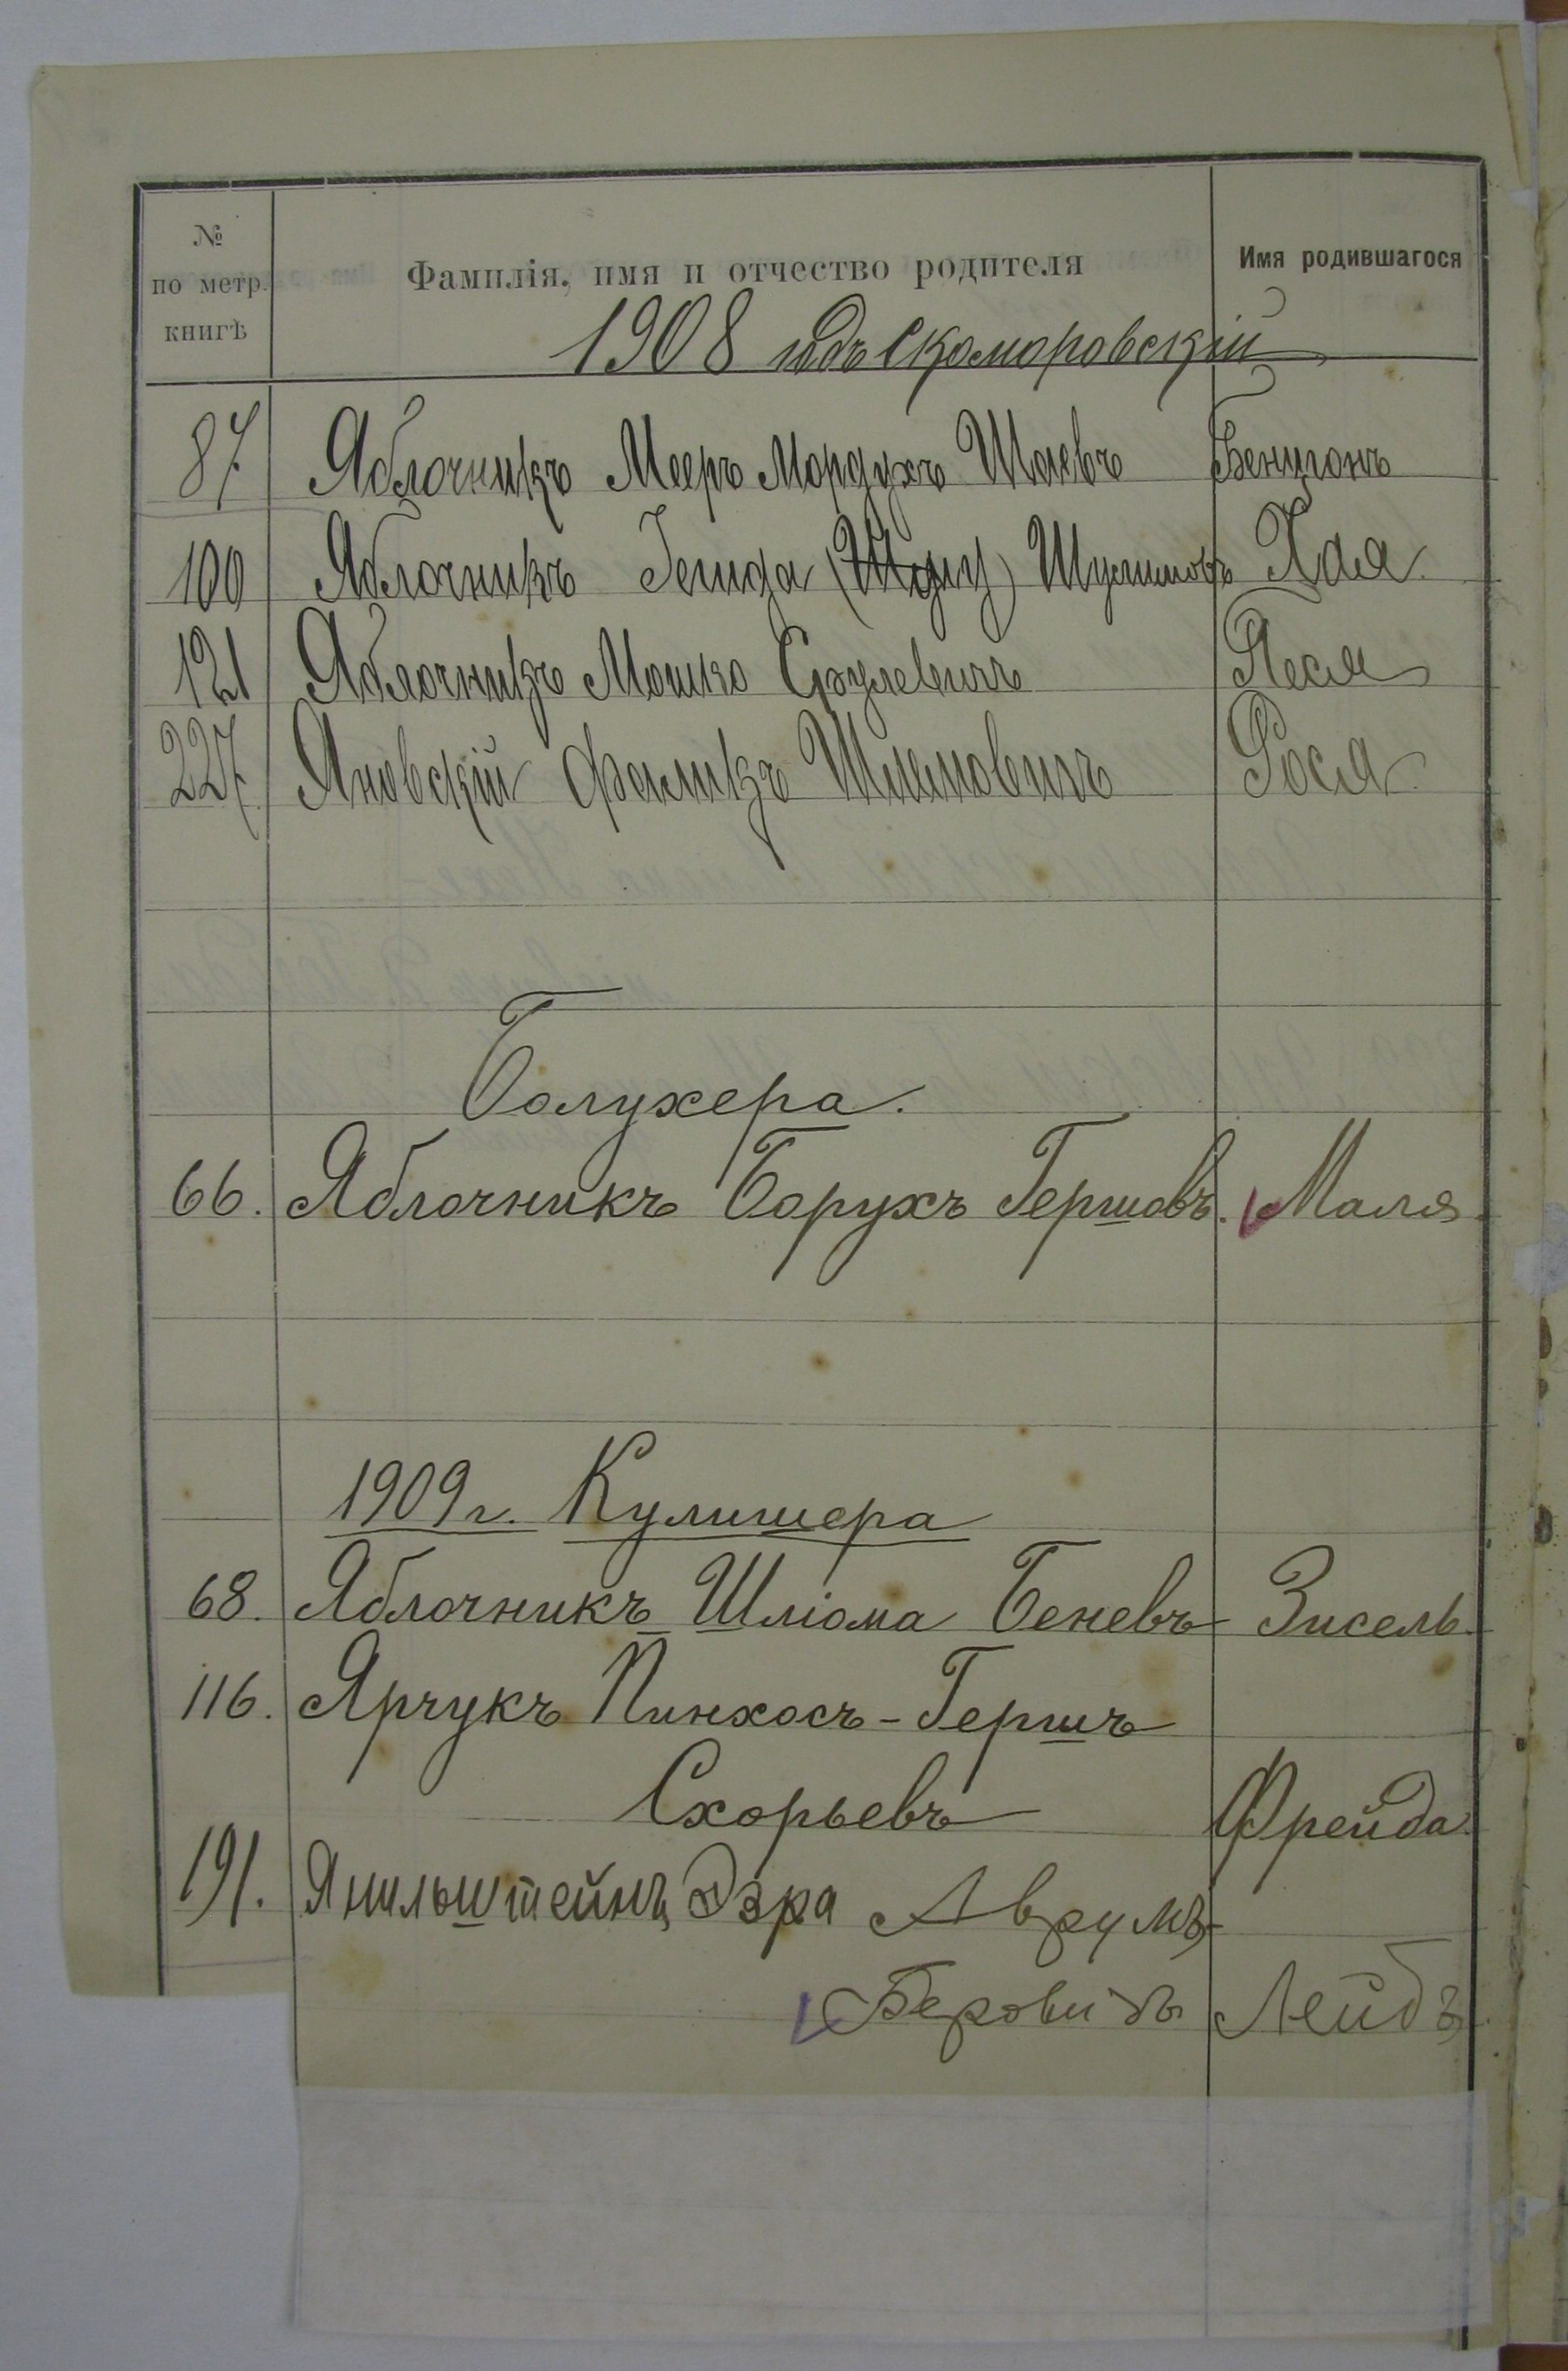 № по метр. книгѣ Фамилія, имя и отчество родителя Имя родившагося
1908 годъ Скоморовскій
87 Яблочникъ Мееръ Мордухъ Шаевъ Бенціонъ
100 Яблочникъ Іешуа Хая
121 Яблочникъ Мошко Срулевичъ Песя
227 Яновскій Фроимъ Шлемовичъ Рося
Болухера.
66. Яблочникъ Борухъ Гершовъ. Маля
1909 г. Кулишера
68. Яблочникъ Шліома Беневъ Зисель
116. Ярчукъ Пинхосъ-Гершъ
Схорьевъ Фрейда
191. Янильштейнъ Эзра Аврумъ-
Беровичъ Лейбъ